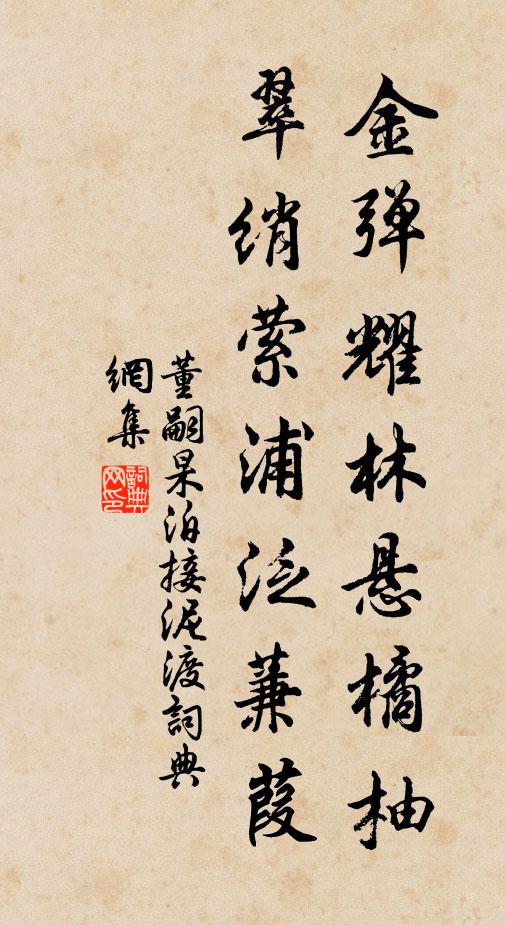 金弹耀林悬橘柚
翠绡萦浦泛蒹葭
董嗣杲泊接泥渡詞典
網集
詞典網印